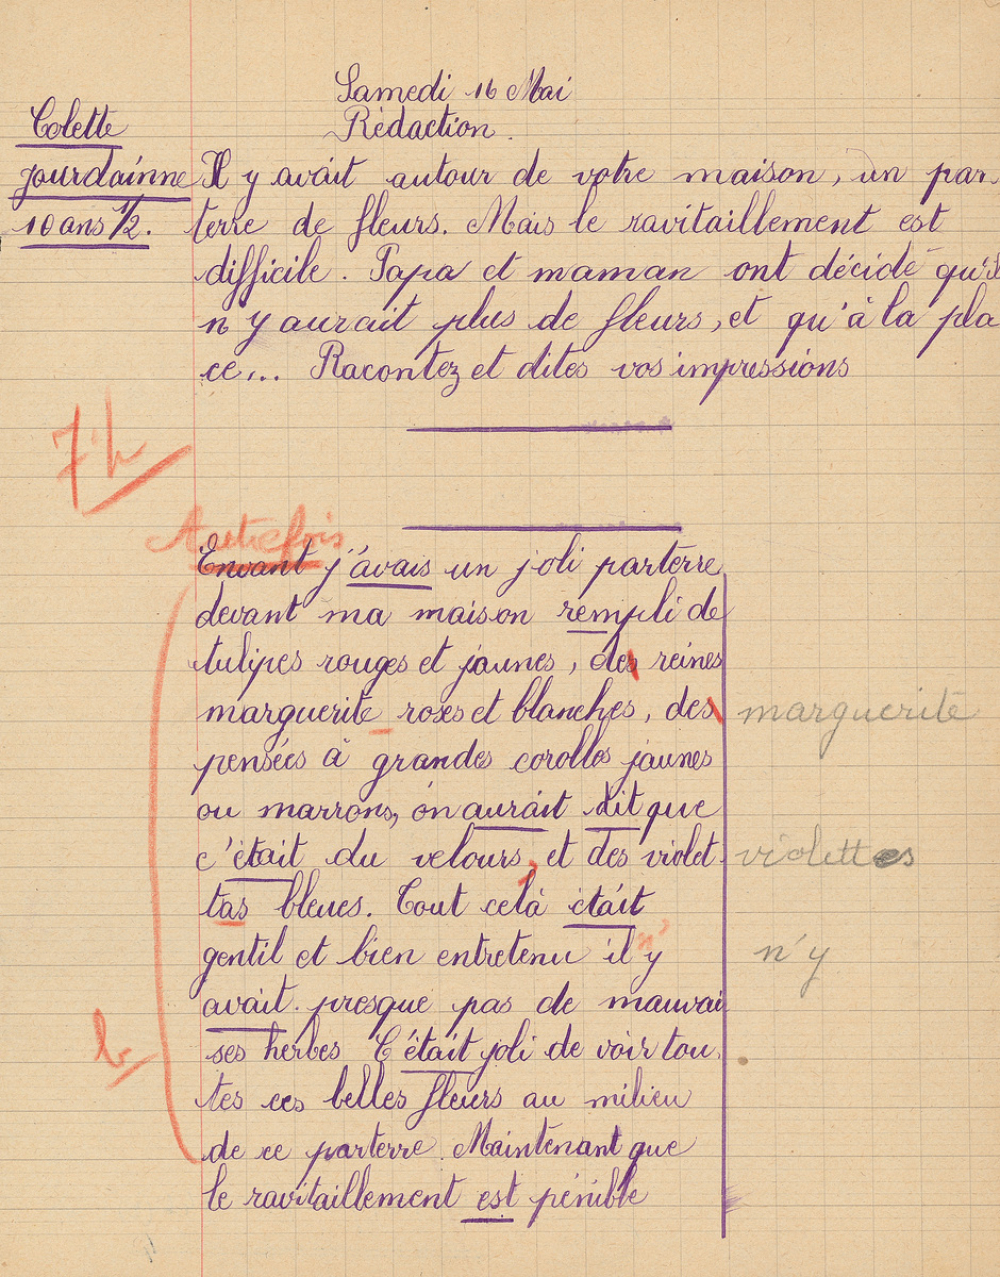 Samedi 16 Mai
Colette
Rédaction.
jourdainne
Il y avait autour de votre maison, un par-
10 ans 1/2.
terre de fleurs. Mais le ravitaillement est
difficile. Papa et maman ont décidé qu'il
n'y aurait plus de fleurs, et qu'à la pla
ce... Racontez et dites vos impressions
Autrefois
Envant j'avais un joli parterre
devant ma maison rempli de
tulipes rouges et jaunes, des reines
marguerite roses et blanches, des marguerite
pensées à grandes corolles jaunes
ou marrons, on aurait dit que
c'était du velours, et des violet violettes
tas bleues. Tout celà était
gentil et bien entretenu il n'y n'y
avait presque pas de mauvai
ses herbes C'était joli de voir tou.
b
tes ces belles fleurs au milieu
de ce parterre. Maintenant que
le ravitaillement est pénible